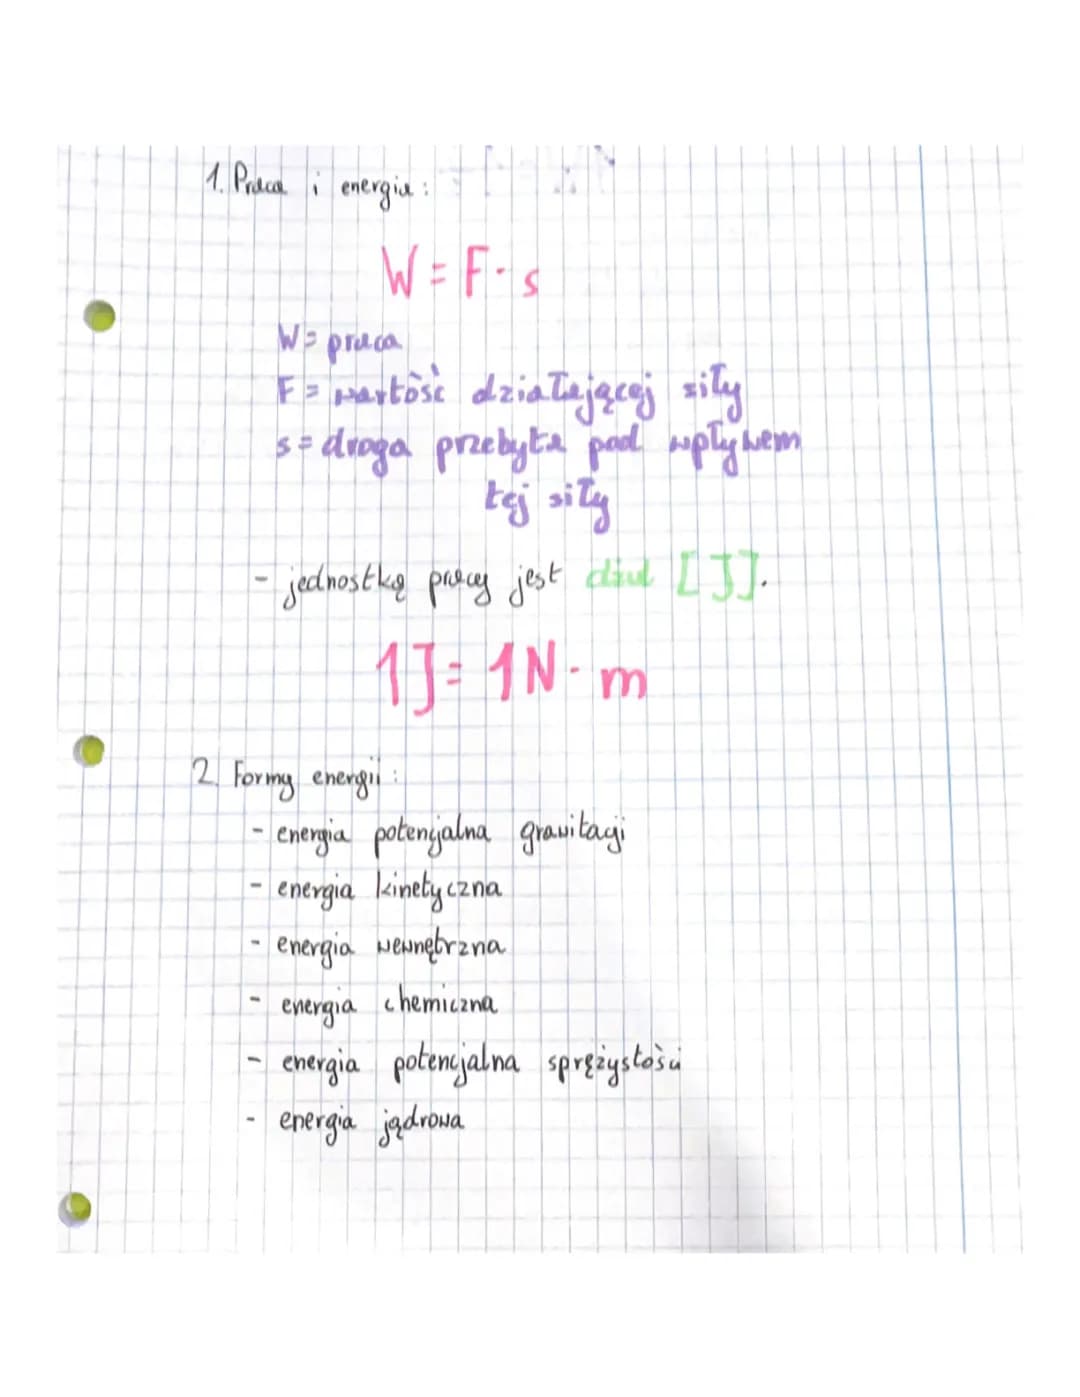 1. Praca i energia:
W = F · s
W = praca
F = wartość działającej siły
s = droga przebyta pod wpływem
tej siły
- jednostką pracy jest dżul [J].
1J = 1N · m
2. Formy energii:
- energia potencjalna grawitacji
- energia kinetyczna
- energia wewnętrzna
- energia chemiczna
- energia potencjalna sprężystości
- energia jądrowa